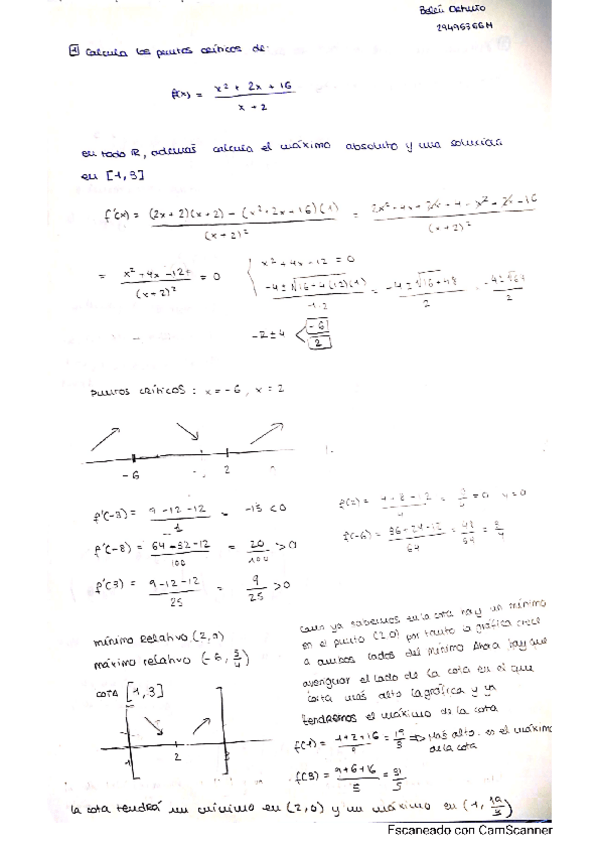 Belén
29496366H
1 Calcula los puntos críticos de:
f(x) = x² + 2x + 16 / x + 2
en todo R, además calcula el máximo absoluto y una solución
en [1,3]
f'(x) = (2x+2)(x+2) - (x²+2x+16)(1) / (x+2)² =
= x² + 4x - 12 / (x+2)² = 0
x² + 4x - 12 = 0
-2 ± 4 < -6
2
puntos críticos : x = -6 , x = 2
-6 2
f'(-3) = 9-12-12 / 1 = -15 < 0
f'(-8) = 64-32-12 / 100 = 20 / 100 > 0
f'(3) = 9-12-12 / 25 = 9 / 25 > 0
mínimo relativo (2,0)
máximo relativo (-6, 3/4)
cota [1,3]
1 2 3
como ya sabemos en la cota hay un mínimo
en el punto (2,0) por tanto la gráfica crece
a ambos lados del mínimo. Ahora hay que
averiguar el lado de la cota en el que
más alto la gráfica y ya
tendremos el máximo de la cota
f(1) = 1+2+16 / 3 = 19/3 ⇒ Más alto, es el máximo
de la cota
f(3) = 9+6+16 / 5 = 31/5
la cota tendrá un mínimo en (2,0) y un máximo en (1, 19/3)
Escaneado con CamScanner